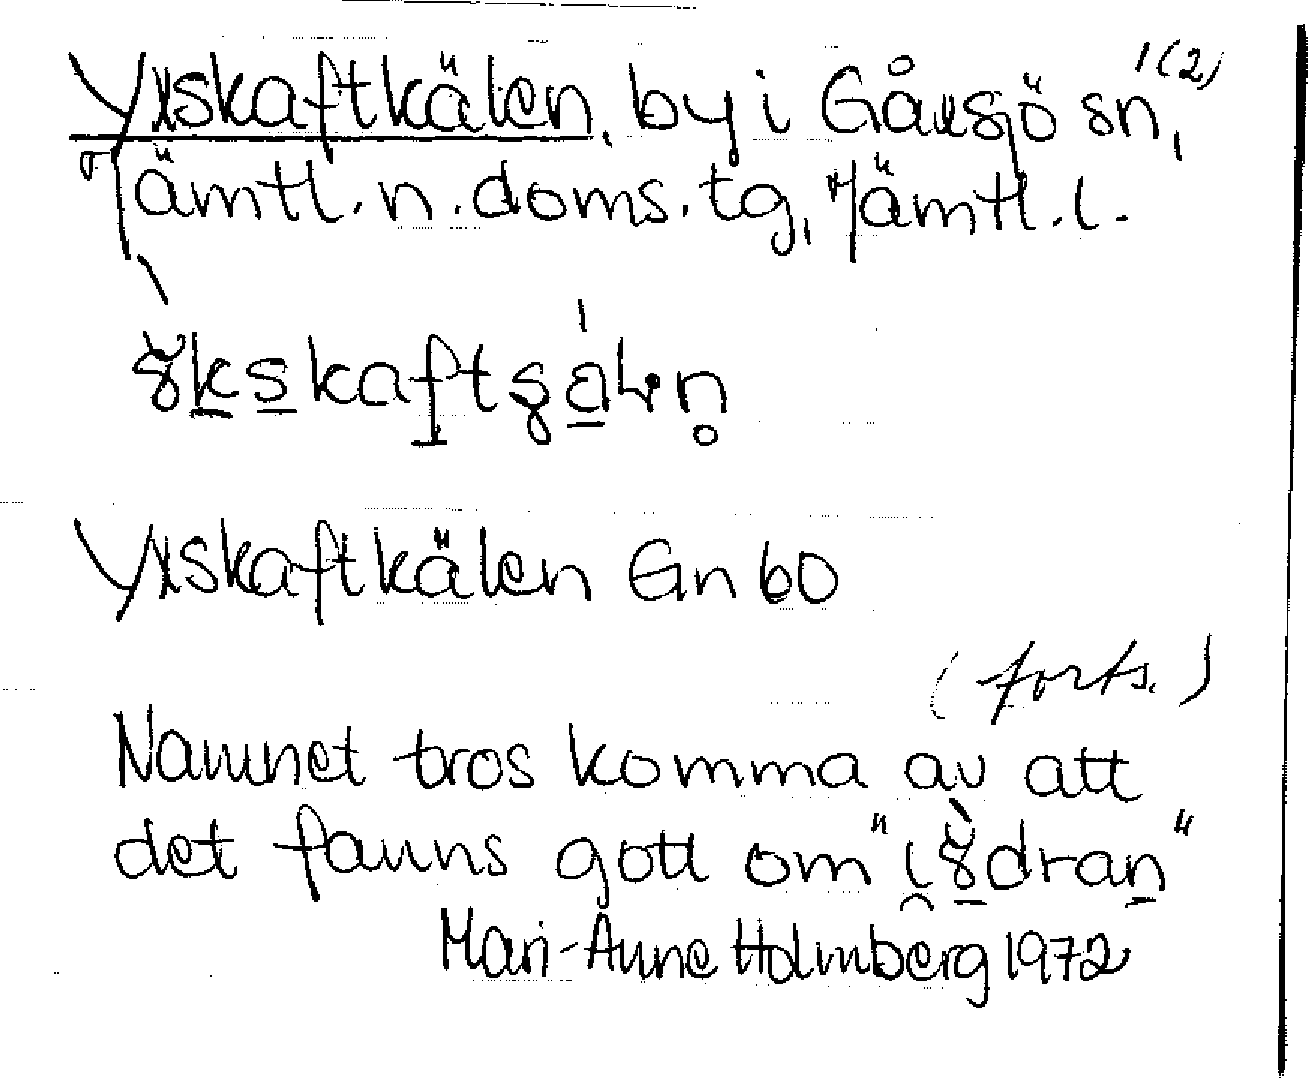 1(2)
Yxskaftkälen, by i Gåxsjö sn,
Jämtl. n. doms. tg, Jämtl. l.
Yxskaftkälen Gn 60
(forts.)
Namnet tros komma av att
det fanns gott om "
Mari-Anne Holmberg 1972